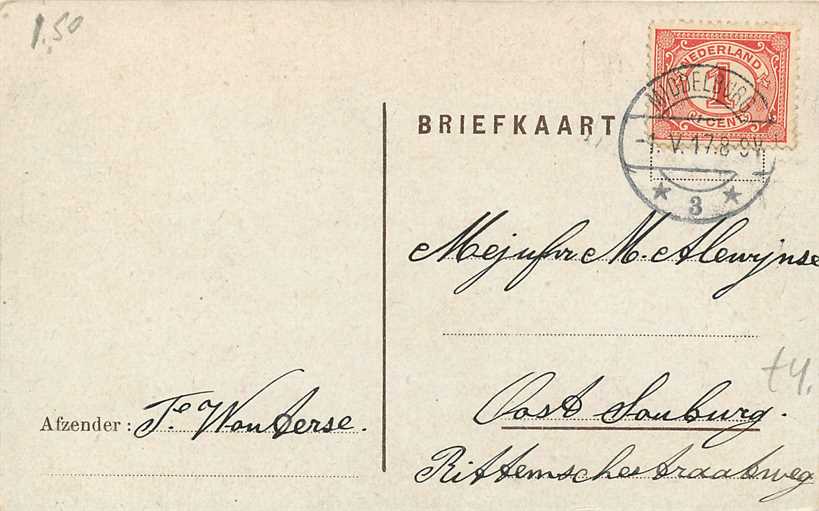 1.50
NEDERLAND
1
CENT
MIDDELBURG
1.V.17.8-9V.
3
BRIEFKAART
Mejufvr M. Alewijnse
Oost Souburg.
Rittemschestraatweg
Afzender : Je Wouterse.